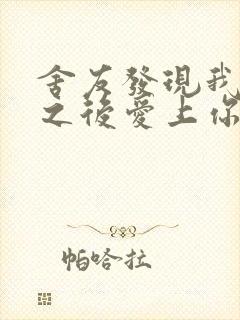 舍友發現我
之後愛上你
帕哈拉